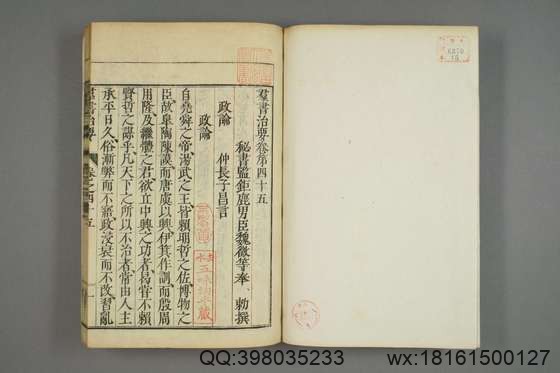 羣書治要卷第四十五
秘書監鉅鹿男臣魏徵等奉 勅撰
政論 仲長子昌言
政論
自堯舜之帝湯武之王皆賴明哲之佐博物之
臣故皋陶陳謨而唐虞以興伊箕作訓而殷周
用隆及繼體之君欲立中興之功者曷嘗不賴
賢哲之謀乎凡天下之所以不治者常由人主
承平日久俗漸弊而不寤政浸衰而不改習亂
羣書治要 卷之四十五 一
QQ:398035233 wx:18161500127